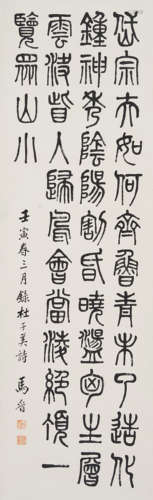 岱宗夫如何齊魯青未了造化
鍾神秀陰陽割昏曉盪匈生層
雲決眥入歸鳥會當淩絕頂一
覽眾山小
壬寅春三月錄杜子美詩 馬晉